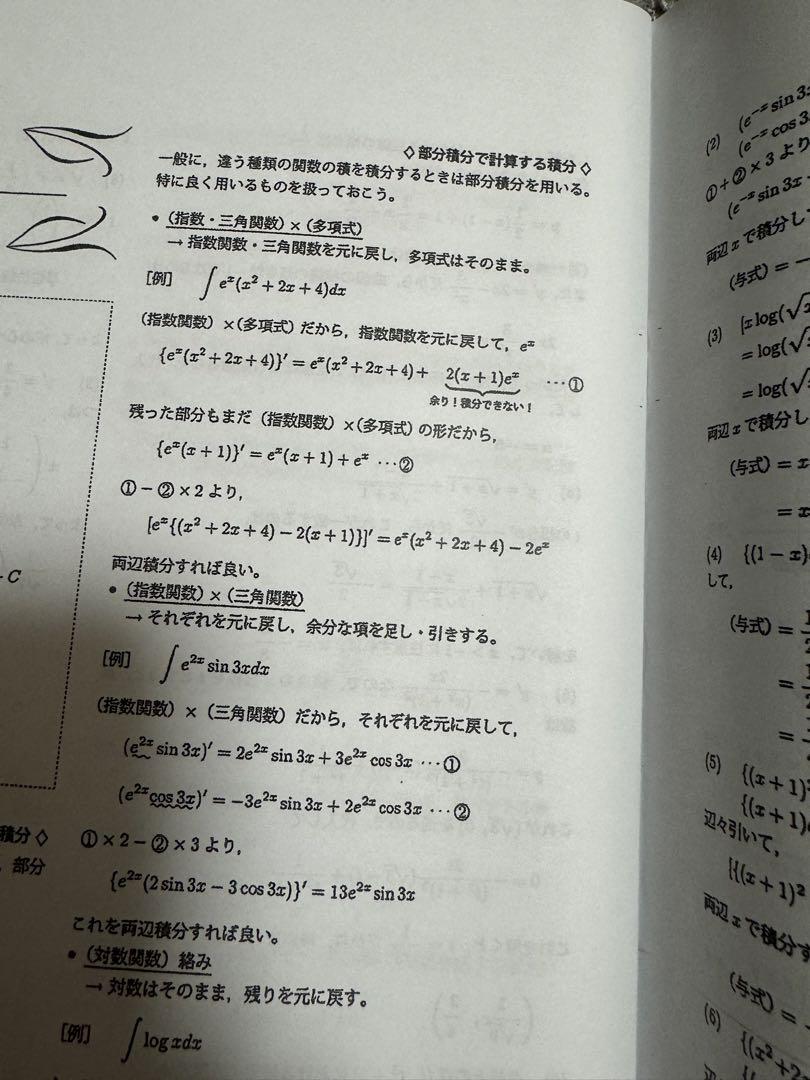 ◇部分積分で計算する積分◇
一般に，違う種類の関数の積を積分するときは部分積分を用いる。
特に良く用いるものを扱っておこう。
• (指数・三角関数)×(多項式)
→ 指数関数・三角関数を元に戻し，多項式はそのまま。
[例] ∫e^x(x²+2x+4)dx
(指数関数)×(多項式)だから，指数関数を元に戻して，e^x
{e^x(x²+2x+4)}′ = e^x(x²+2x+4)+ 2(x+1)e^x …①
余り！積分できない！
残った部分もまだ（指数関数）×(多項式)の形だから，
{e^x(x+1)}′ = e^x(x+1)+e^x …②
①−②×2より，
[e^x{(x²+2x+4)−2(x+1)}]′ = e^x(x²+2x+4)−2e^x
両辺積分すれば良い。
• (指数関数)×(三角関数)
→ それぞれを元に戻し，余分な項を足し・引きする。
[例] ∫e^{2x} sin 3xdx
(指数関数)×(三角関数)だから，それぞれを元に戻して，
(e^{2x} sin 3x)′ = 2e^{2x} sin 3x + 3e^{2x} cos 3x …①
(e^{2x} cos 3x)′ = −3e^{2x} sin 3x + 2e^{2x} cos 3x …②
①×2−②×3より，
{e^{2x}(2 sin 3x − 3 cos 3x)}′ = 13e^{2x} sin 3x
これを両辺積分すれば良い。
• (対数関数)絡み
→ 対数はそのまま，残りを元に戻す。
[例] ∫log xdx
C
積分◇
，部分
(2) (e^{-x} sin 3
(e^{-x} cos 3
①+②×3より
(e^{-x} sin 3x
両辺xで積分し
(与式) = −
(3) [x log(√
= log(√
= log(√
両辺xで積分し
(与式) = x
= x
(4) {(1−x)
して，
(与式) =
=
=
(5) {(x+1)
{(x+1)
辺々引いて，
[{(x+1)²
両辺xで積分す
(与式) =
(6) {(x²+2